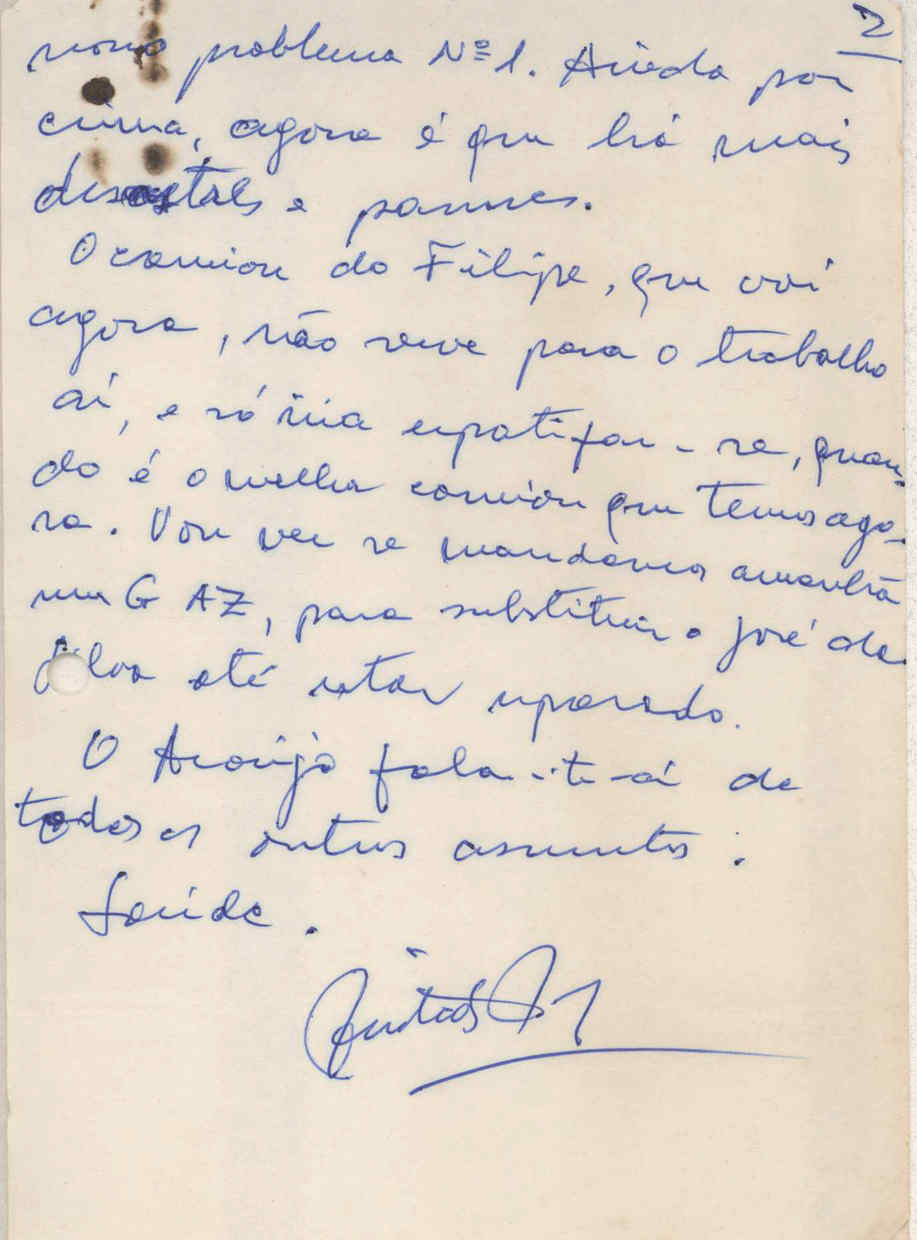 2
nosso problema Nº 1. Ainda por
cima, agora é que há mais
desastres e pannes.
O camion do Filipe, que vai
agora, não serve para o trabalho
aí, e só iria espatifar-se, quan-
do é o melhor camion que temos ago-
ra. Vou ver se mandamos amanhã
um GAZ, para substituir o José da
Silva até estar reparado.
O Araújo fala-te-á de
todos os outros assuntos.
Saúde.